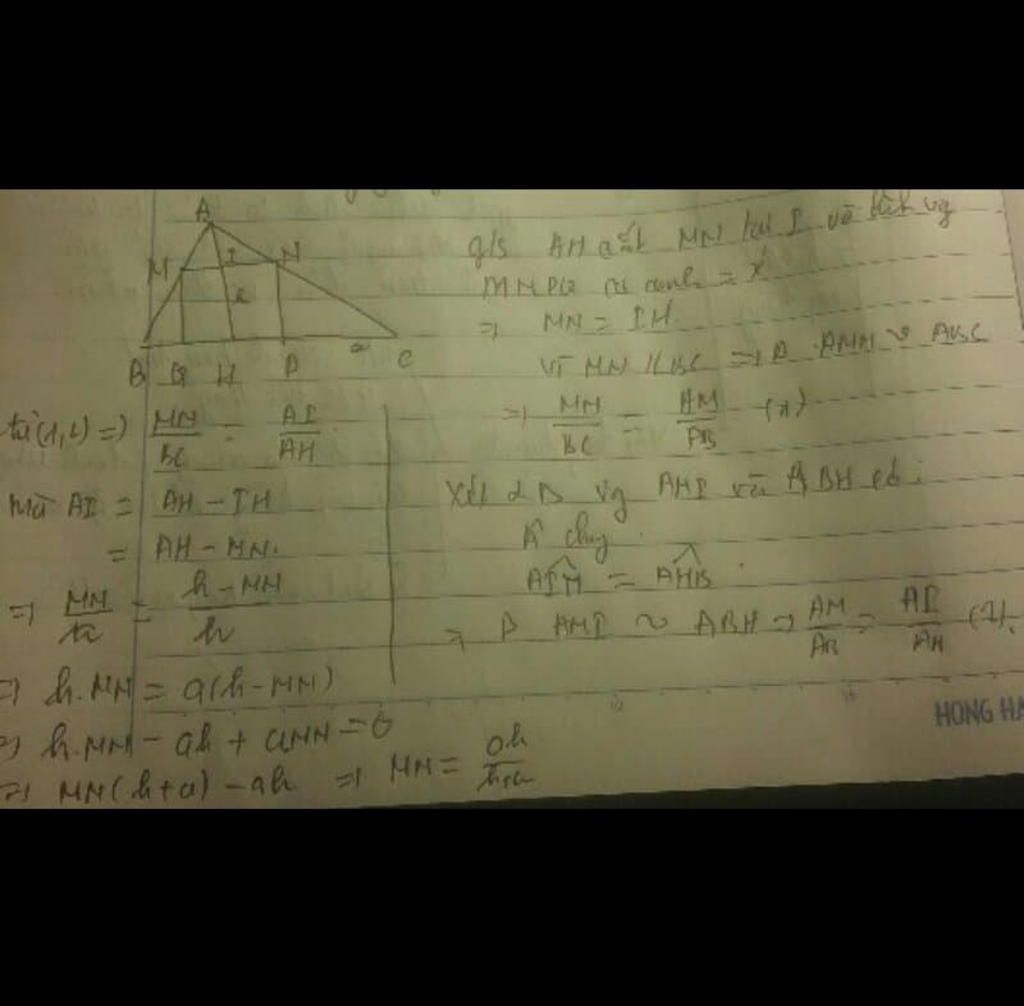 A
M I N
x
B Q H P a C
g/s AH cắt MN tại I và
MNPQ có cạnh = x
=> MN = IH.
Vì MN // BC => Δ AMN ∽ ABC
=> MN/BC = AM/AB (1)
Xét 2 Δ vg AMI và ABH có:
Â chung
AIM = AHB
=> Δ AMI ~ ABH => AM/AB = AI/AH (2).
từ (1,2) => MN/BC = AI/AH
Mà AI = AH - IH
= AH - MN.
=> MN/a = h - MN/h
=> h.MN = a(h - MN)
=> h.MN - ah + aMN = 0
=> MN(h + a) - ah => MN = ah/h+a
HONG HA